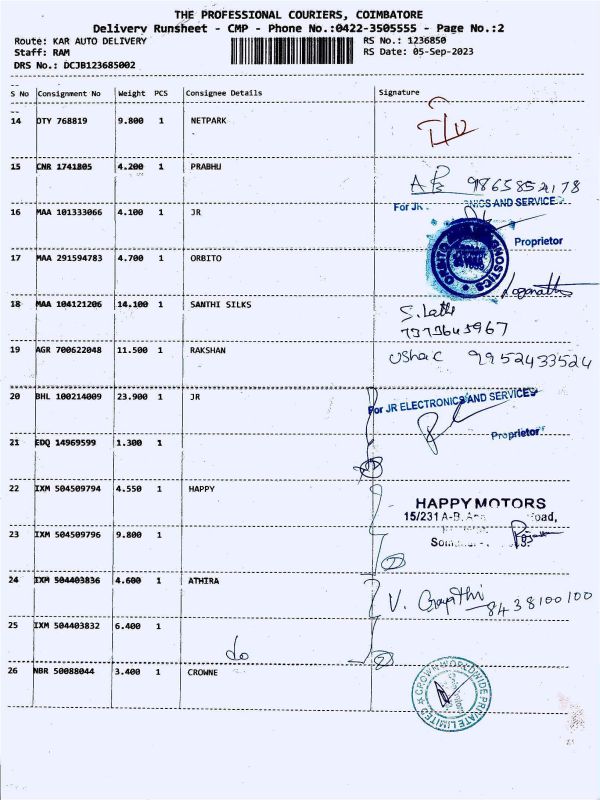 THE PROFESSIONAL COURIERS, COIMBATORE
Delivery Runsheet - CMP - Phone No.:0422-3505555 - Page No.:2
Route: KAR AUTO DELIVERY RS No.: 1236850
Staff: RAM RS Date: 05-Sep-2023
DRS No.: DCJB123685002
S No Consignment No Weight PCS Consignee Details Signature
14 DTY 768819 9.800 1 NETPARK
15 CNR 1741805 4.200 1 PRABHU
9865852178
16 MAA 101333066 4.100 1 JR
For JR ONICS AND SERVICE
Proprietor
17 MAA 291594783 4.700 1 ORBITO
DIAGNOSTICS
Loganath
18 MAA 104121206 14.100 1 SANTHI SILKS
S. Latha
7373645967
19 AGR 700622048 11.500 1 RAKSHAN
Usha C 9952433524
20 BHL 100214009 23.900 1 JR
For JR ELECTRONICS AND SERVICES
Proprietor
21 EDQ 14969599 1.300 1
22 IXM 504509794 4.550 1 HAPPY
HAPPY MOTORS
15/231 A-B, oad,
23 IXM 504509796 9.800 1
24 IXM 504403836 4.600 1 ATHIRA
V. Gayathri
8438100100
25 IXM 504403832 6.400 1
do
26 NBR 50088044 3.400 1 CROWNE
CROWN WORLDWIDE PRIVATE LIMITED